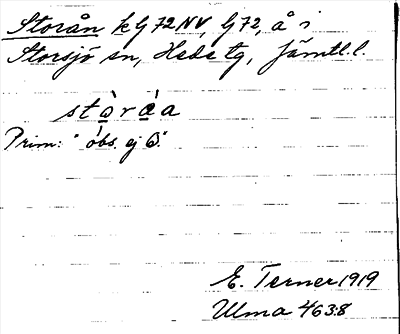 Storån kG72NV, G72, å i
Storsjö sn, Hede tg, Jämtl. l.
stòráa
Prim: "obs. ej ω."
E. Terner 1919
Ulma 463:8